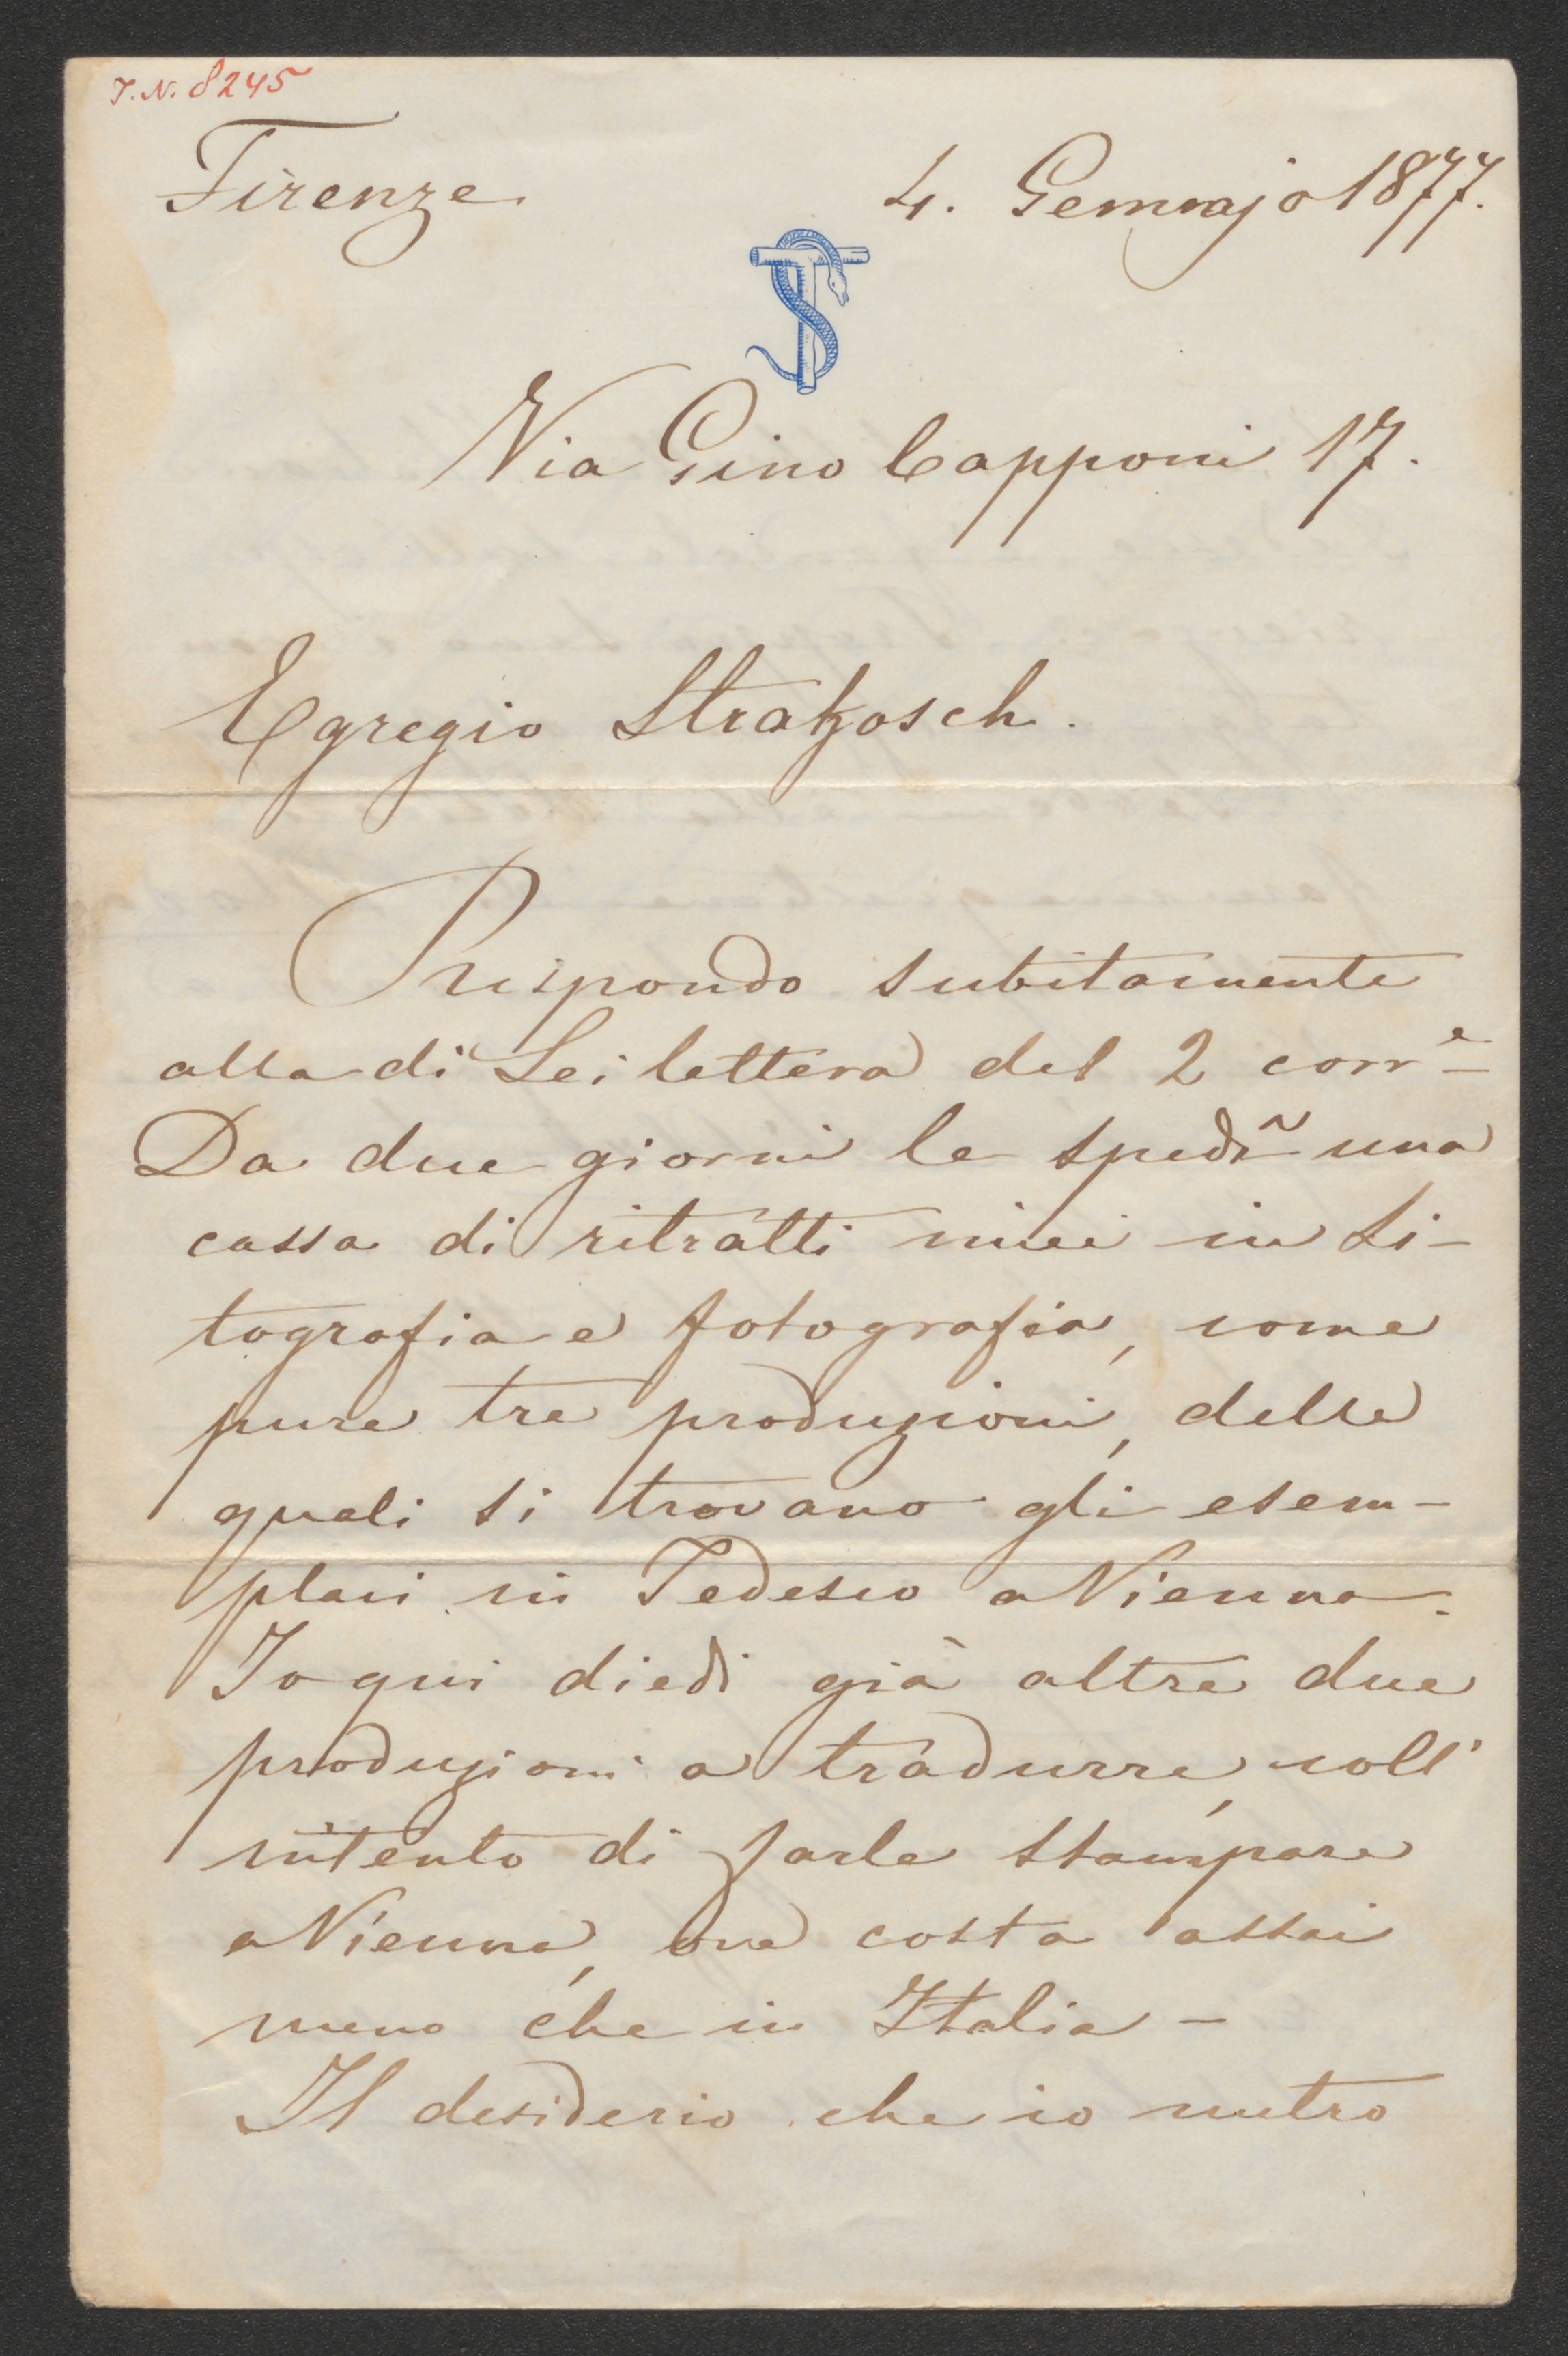 J.N. 8245
Firenze 4. Gennajo 1877.
TS
Via Gino Capponi 17.
Egregio Strakosch.
Rispondo subitamente
alla di Lei lettera del 2 corr.e
Da due giorni le spedĩ una
cassa di ritratti miei in Li-
tografia e fotografia, come
pure tre produzioni, delle
quali si trovano gli esem-
plari in Tedesco a Vienna.
Io qui diedi già altre due
produzioni a tradurre, coll'
intento di farle stampare
a Vienna, ove costa assai
meno che in Italia -
Il desiderio che io nutro